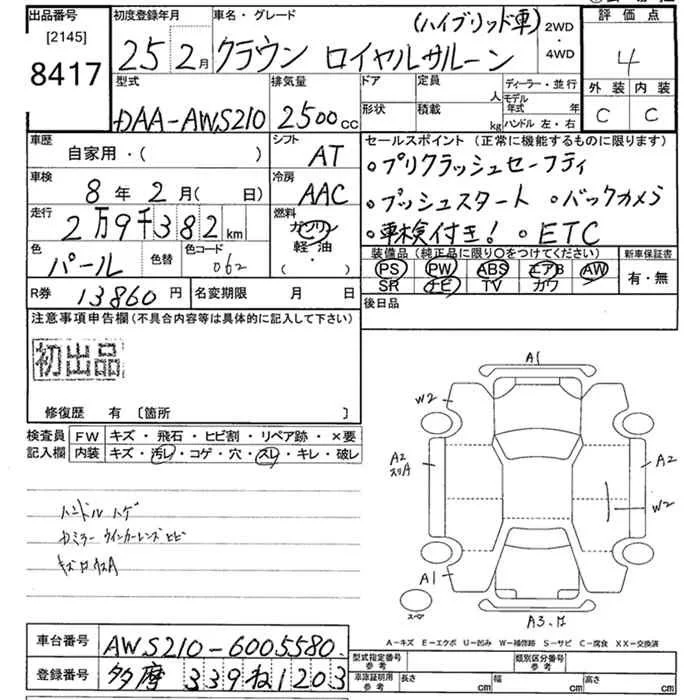 出品番号
[2145]
8417
初度登録年月
25年2月
車名・グレード
(ハイブリッド車)
クラウン ロイヤルサルーン
2WD
・
4WD
評価点
4
外装 内装
C C
型式
DAA-AWS210
排気量
2500cc
ドア 定員 人
形状 積載 kg
ディーラー・並行
モデル年式 年
ハンドル 左・右
車歴
自家用・( )
シフト
AT
車検
8年2月( 日)
冷房
AAC
走行
2万9千382km
燃料
ガソリン
軽・油
・( )
色
パール
色替
色コード
062
セールスポイント (正常に機能するものに限ります)
○プリクラッシュセーフティ
○プッシュスタート ○バックカメラ
○車検付き! ○ETC
装備品 (純正品に限り〇をつけてください)
PS PW ABS エアB AW
SR ナビ TV カワ
新車保証書
有・無
R券 13860円 名変期限 月 日
後日品
注意事項申告欄(不具合内容等は具体的に記入して下さい)
初出品
修復歴 有 〔箇所 〕
検査員記入欄
FW キズ・飛石・ヒビ割・リペア跡・×要
内装 キズ・汚レ・コゲ・穴・スレ・キレ・破レ
ハンドルハゲ
カミラーウインカーレンズヒビ
A1
W2
A2
スリA
A2
W2
A1
スペア
A3.
A-キズ E-エクボ U-凹み W-補修跡 S-サビ C-腐食 XX-交換済
車台番号 AWS210-6005580
登録番号 多摩 339ね1203
型式指定番号 参考
類別区分番号 参考
車庫証明用 参考
長さ cm 幅 cm 高さ cm